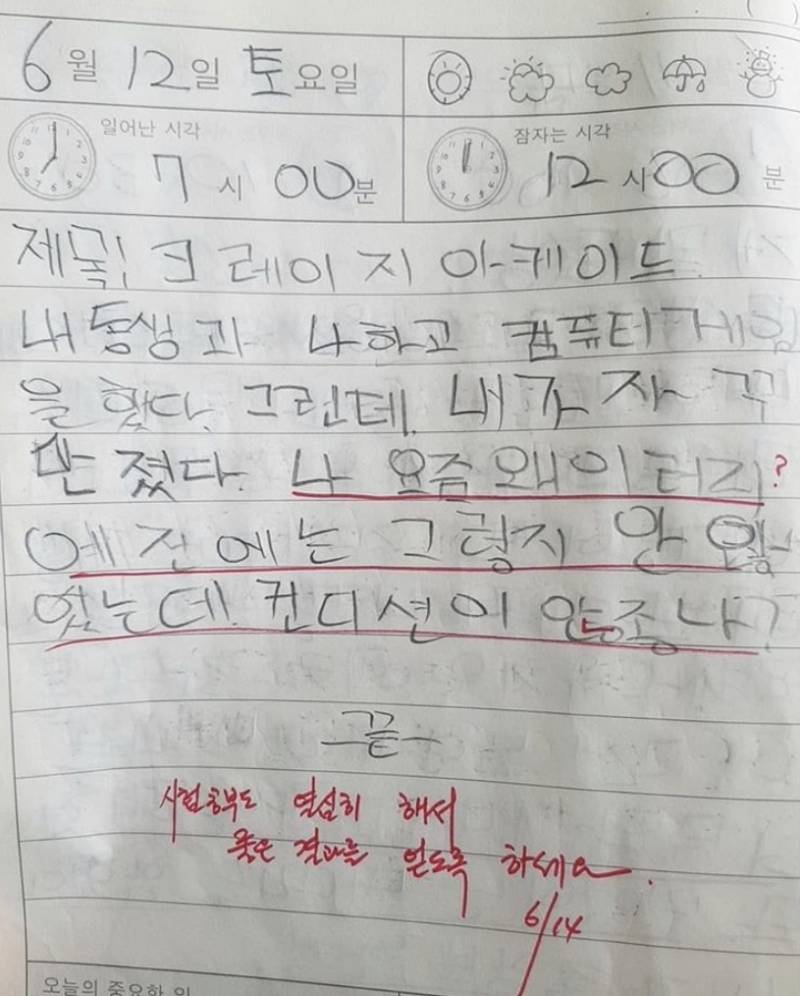 6월 12일 토요일
일어난 시각
7시 00분
잠자는 시각
12시 00분
제목! 크레이지 아케이드
내 동생과 나하고 컴퓨터 게임
을 했다. 그런데. 내가 자꾸
만 졌다. 나 요즘 왜 이러지?
예전에는 그렇지 안
았는데! 컨디션이 안조나?
끝
시험공부도 열심히 해서
좋은 결과를 얻도록 하세요.
6/14
오늘의 중요한 일